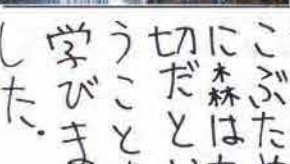 こぶた
に森は
切だと
うこと
学びま
した。